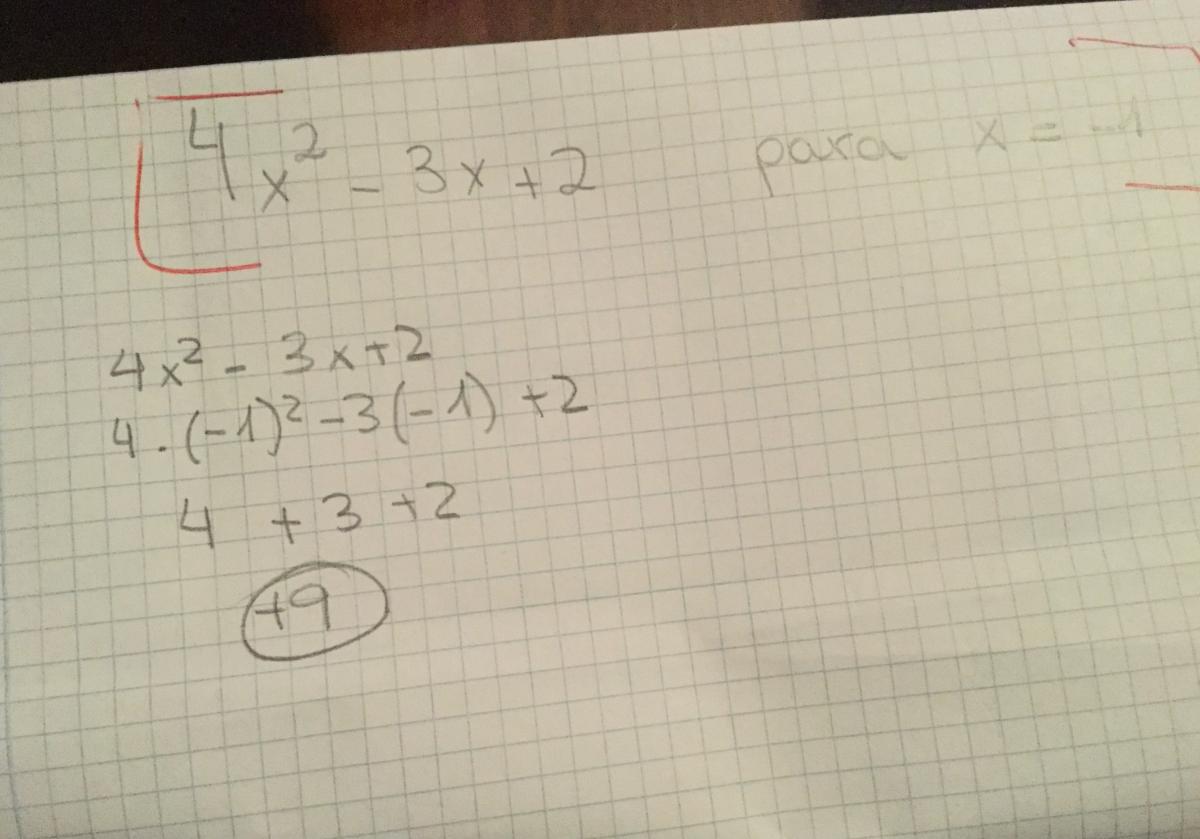 4x² - 3x + 2 para x = -1
4x² - 3x + 2
4 · (-1)² - 3(-1) + 2
4 + 3 + 2
+9